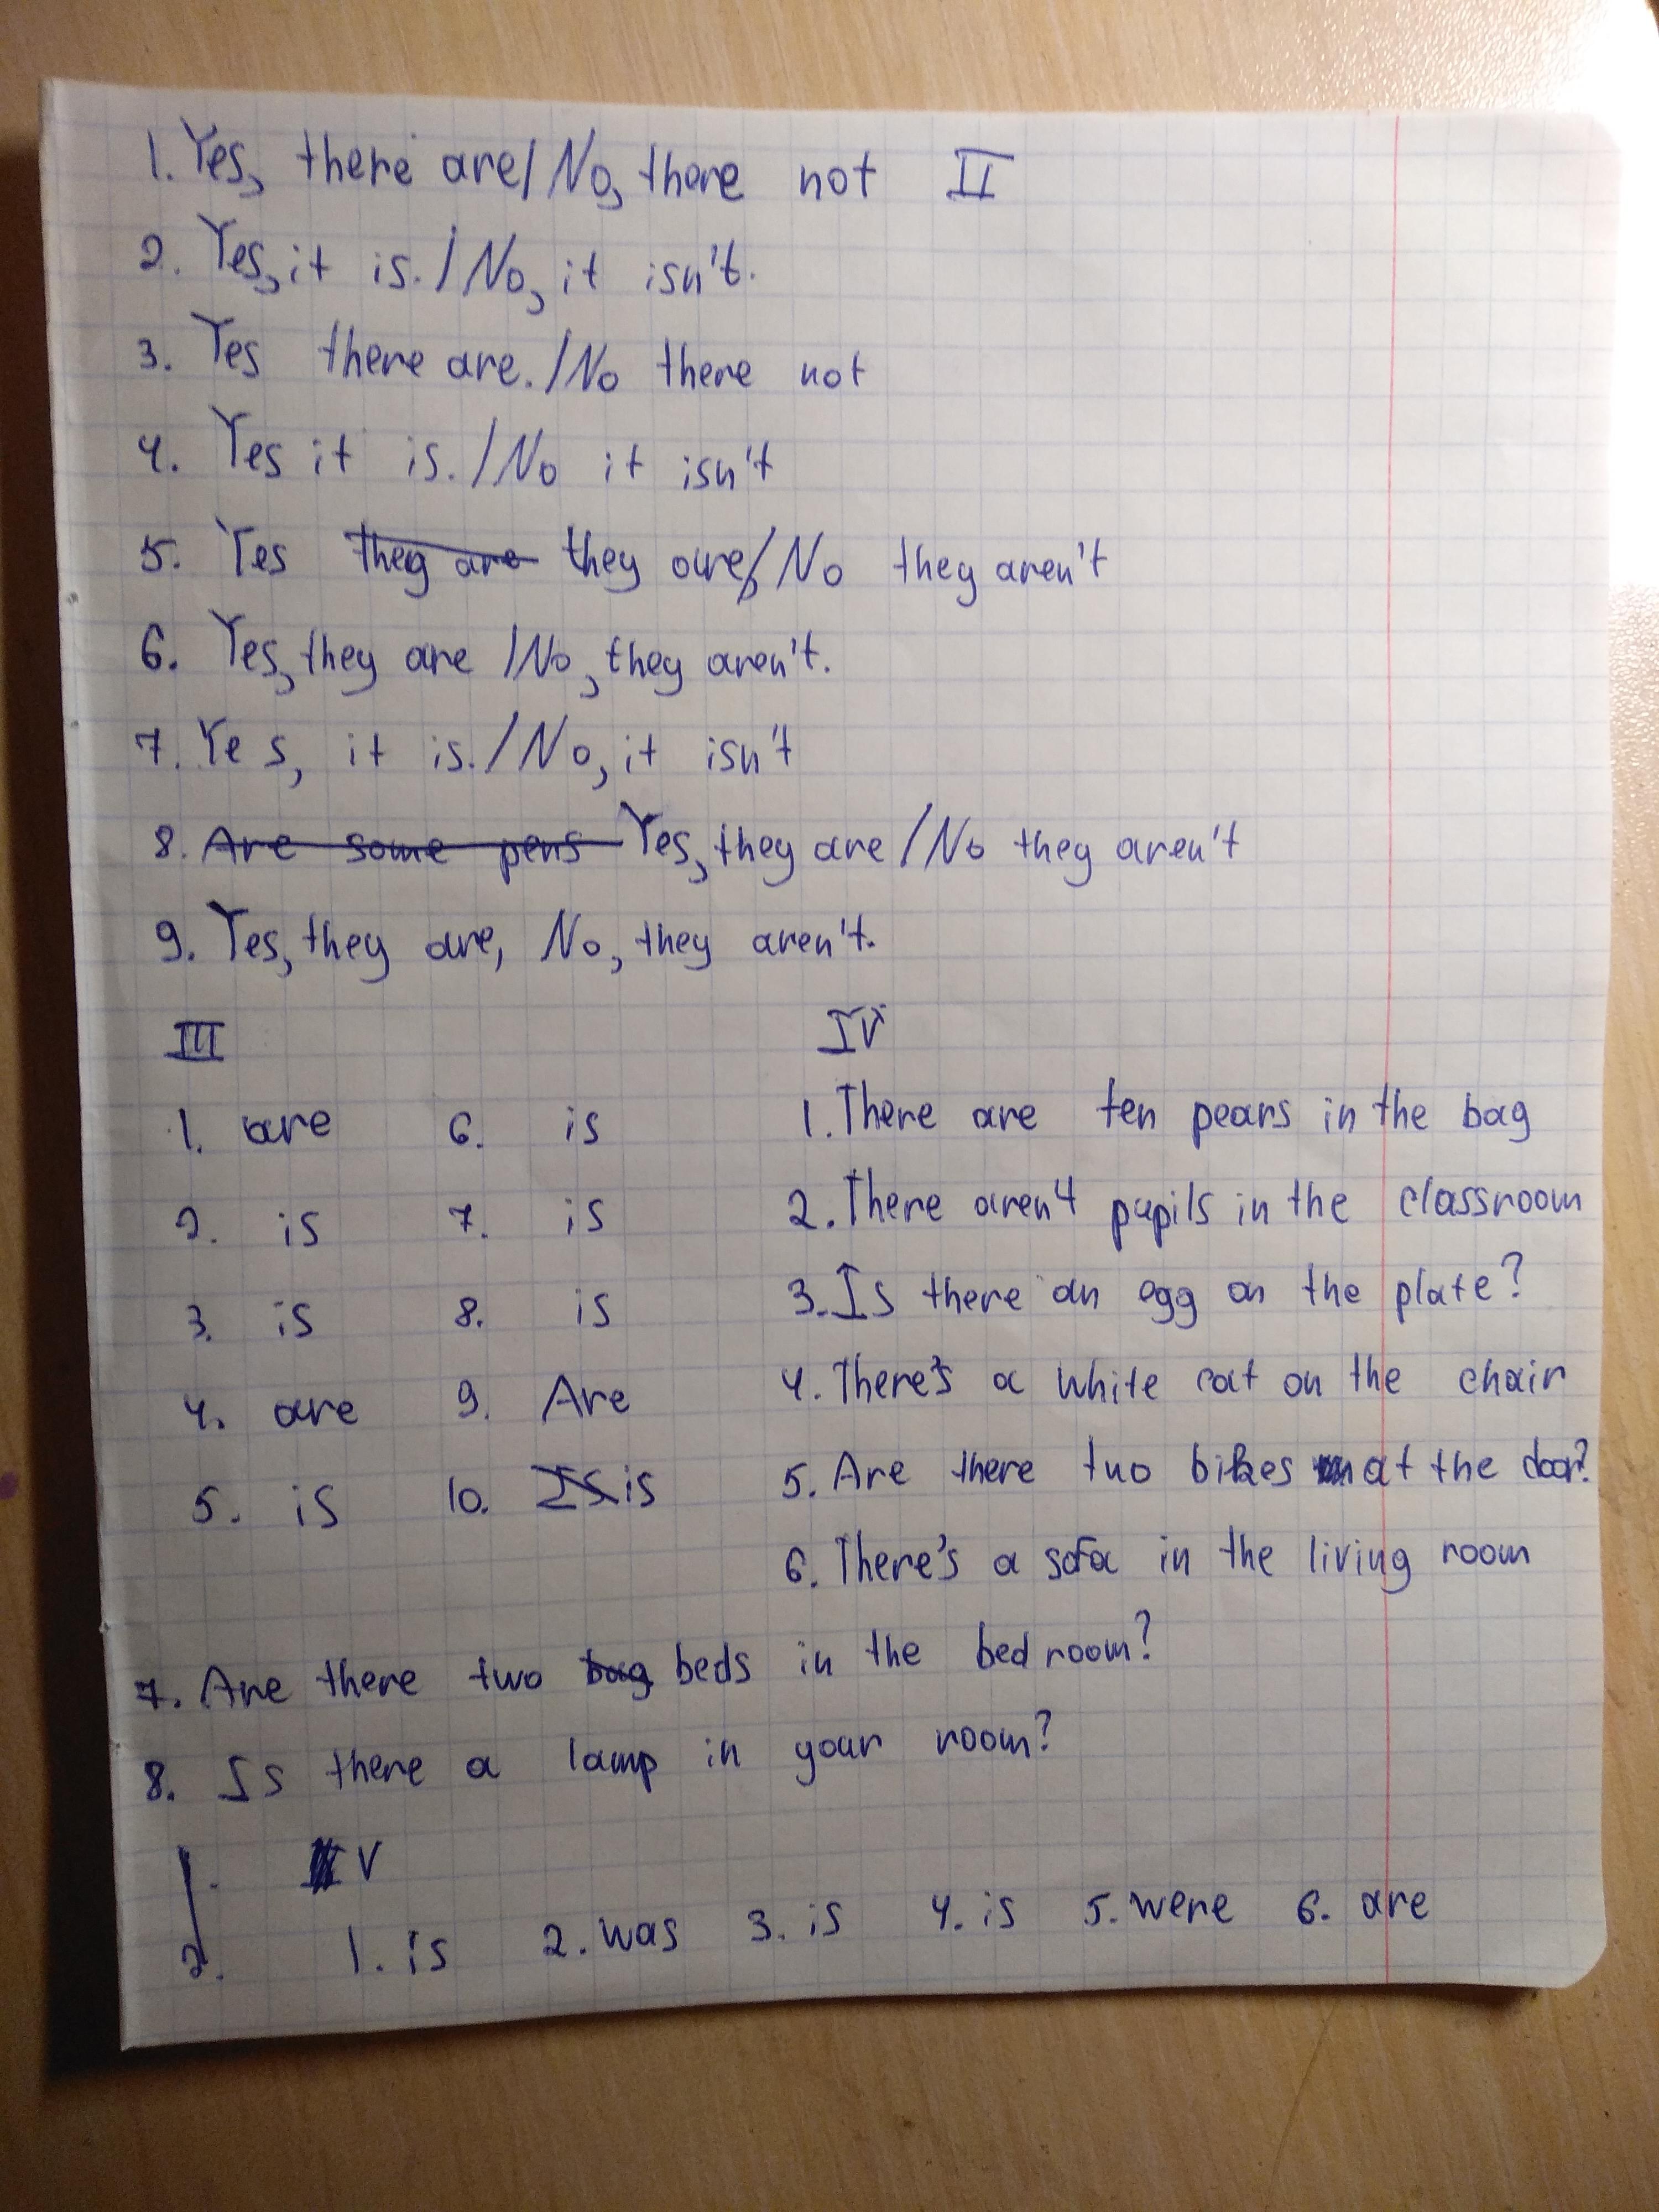 1. Yes, there are/ No, there not II
2. Yes, it is. / No, it isn't.
3. Yes there are. / No there not
4. Yes it is. / No it isn't
5. Yes they are they are/ No they aren't
6. Yes, they are / No, they aren't.
7. Yes, it is. / No, it isn't
8. Are some pens Yes, they are / No they aren't
9. Yes, they are, No, they aren't.
III
1. are 6. is
2. is 7. is
3. is 8. is
4. are 9. Are
5. is 10. Is is
IV
1. There are ten pears in the bag
2. There aren't pupils in the classroom
3. Is there an egg on the plate?
4. There's a white cat on the chair
5. Are there two bikes at the door?
6. There's a sofa in the living room
7. Are there two bag beds in the bedroom?
8. Is there a lamp in your room?
1. V
2. 1. is 2. was 3. is 4. is 5. were 6. are